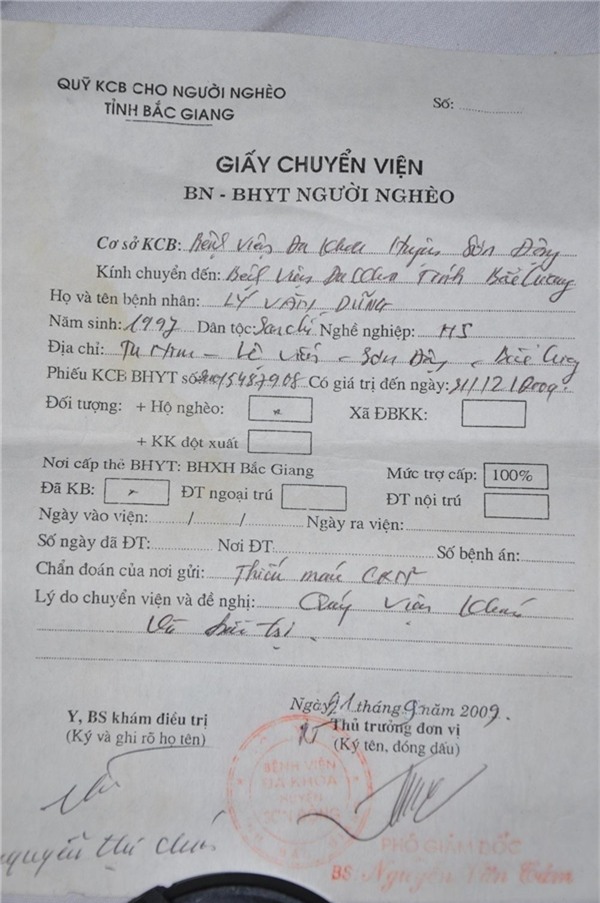 QUỸ KCB CHO NGƯỜI NGHÈO
TỈNH BẮC GIANG
Số:
GIẤY CHUYỂN VIỆN
BN - BHYT NGƯỜI NGHÈO
Cơ sở KCB: Bệnh viện Đa khoa Huyện Sơn Động
Kính chuyển đến: Bệnh viện Đa khoa Tỉnh Bắc Giang
Họ và tên bệnh nhân: LÝ VĂN DŨNG
Năm sinh: 1997 Dân tộc: Sán chí Nghề nghiệp: HS
Địa chỉ: - Lệ Viễn - Sơn Động - Bắc Giang
Phiếu KCB BHYT số Có giá trị đến ngày: 31/12/2009.
Đối tượng: + Hộ nghèo: x Xã ĐBKK:
+ KK đột xuất
Nơi cấp thẻ BHYT: BHXH Bắc Giang Mức trợ cấp: 100%
Đã KB: x ĐT ngoại trú ĐT nội trú
Ngày vào viện: / / Ngày ra viện:
Số ngày đã ĐT: Nơi ĐT Số bệnh án:
Chẩn đoán của nơi gửi: Thiếu máu CRNN
Lý do chuyển viện và đề nghị: Quý viện khám
Và điều trị.
Ngày 21 tháng 9 năm 2009.
Y, BS khám điều trị
(Ký và ghi rõ họ tên)
Thủ trưởng đơn vị
(Ký tên, đóng dấu)
BỆNH VIỆN
ĐA KHOA
HUYỆN
SƠN ĐỘNG
Nguyễn thị
PHÓ GIÁM ĐỐC
BS Nguyễn Văn